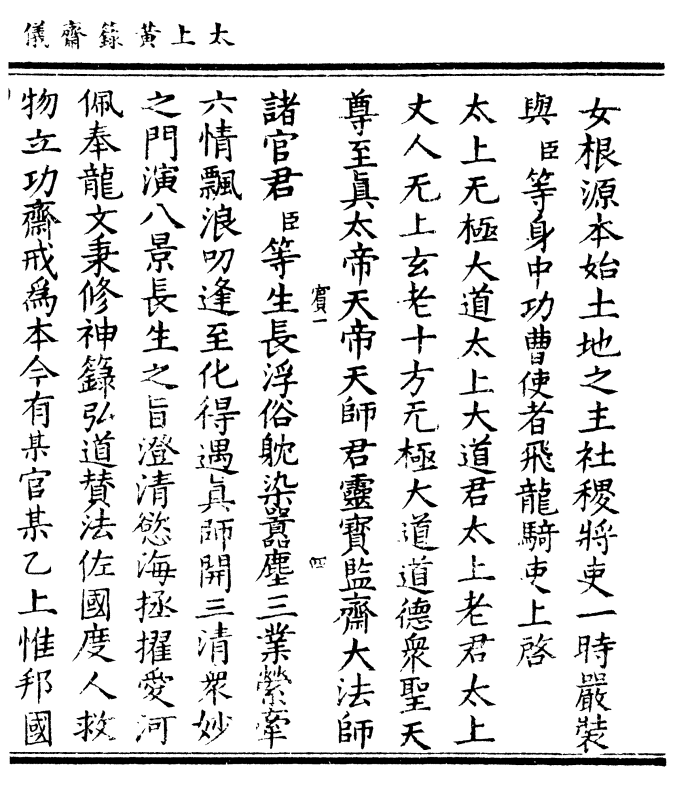 太上黃籙齋儀
女根源本始土地之主社稷將吏一時嚴裝
與臣等身中功曹使者飛龍騎吏上啓
太上无極大道太上大道君太上老君太上
丈人无上玄老十方无極大道道德衆聖天
尊至眞太帝天帝天師君靈寶監齋大法師
賓一
四
諸官君臣等生長浮俗躭染囂塵三業縈牽
六情飄浪叨逢至化得遇眞師開三清衆妙
之門演八景長生之旨澄清慾海拯擢愛河
佩奉龍文秉修神籙弘道贊法佐國度人救
物立功齋戒爲本今有某官某乙上惟邦國